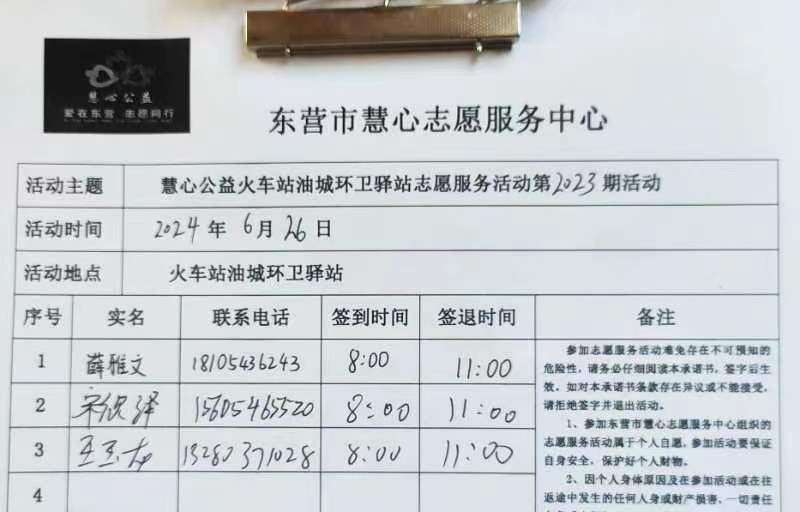 慧心公益
爱在东营 志愿同行
东营市慧心志愿服务中心
活动主题 慧心公益火车站油城环卫驿站志愿服务活动第2023期活动
活动时间 2024年6月26日
活动地点 火车站油城环卫驿站
序号 实名 联系电话 签到时间 签退时间 备注
1 薛雅文 18105436243 8:00 11:00
2 15605465520 8:00 11:00
3 13280371028 8:00 11:00
4
参加志愿服务活动难免存在不可预知的
危险性，请务必仔细阅读本承诺书，签字后生
效。如对本承诺书条款存在异议或不能接受，
请拒绝签字并退出活动。
1、参加东营市慧心志愿服务中心组织的
志愿服务活动属于个人自愿，参加活动要保证
自身安全，保护好个人财物。
2、因个人身体原因及在参加活动或在往
返途中发生的任何人身或财产损害，一切责任